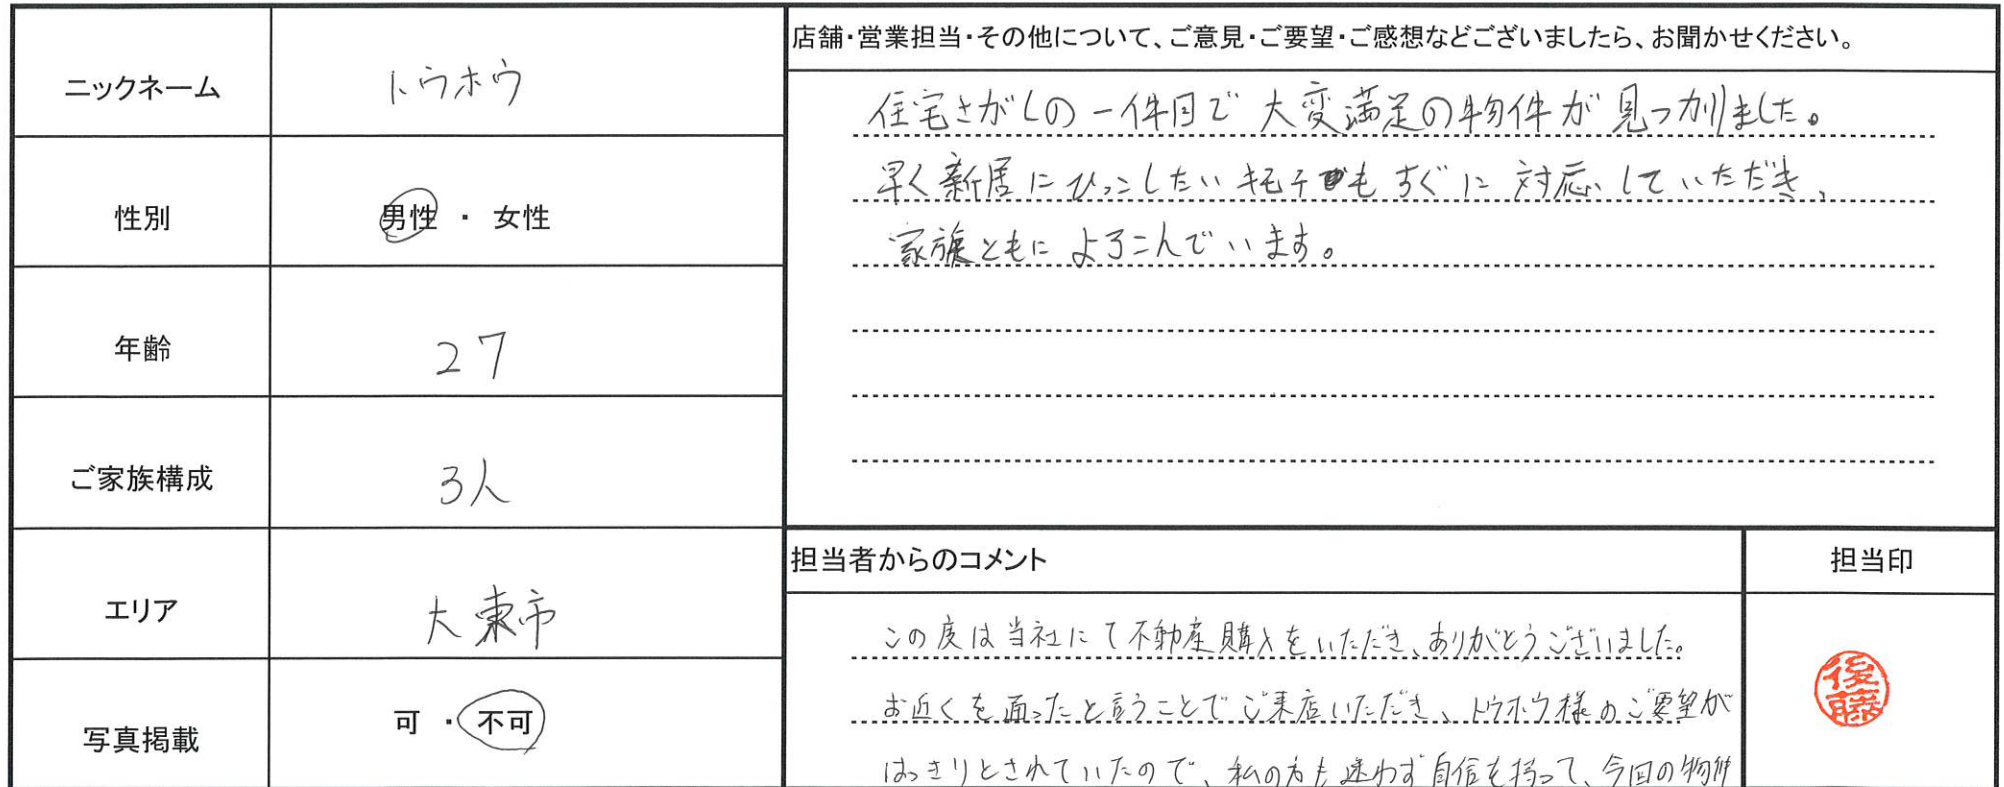 ニックネーム
トウホウ
性別
男性 ・ 女性
年齢
27
ご家族構成
3人
エリア
大東市
写真掲載
可 ・ 不可
店舗・営業担当・その他について、ご意見・ご要望・ご感想などございましたら、お聞かせください。
住宅さがしの一件目で大変満足の物件が見つかりました。
早く新居にひっこしたいキモチもすぐに対応していただき、
家族ともによろこんでいます。
担当者からのコメント
この度は当社にて不動産購入をいただき、ありがとうございました。
お近くを通ったと言うことでご来店いただき、トウホウ様のご要望が
はっきりとされていたので、私の方も迷わず自信を持って、今回の物件
担当印
後藤